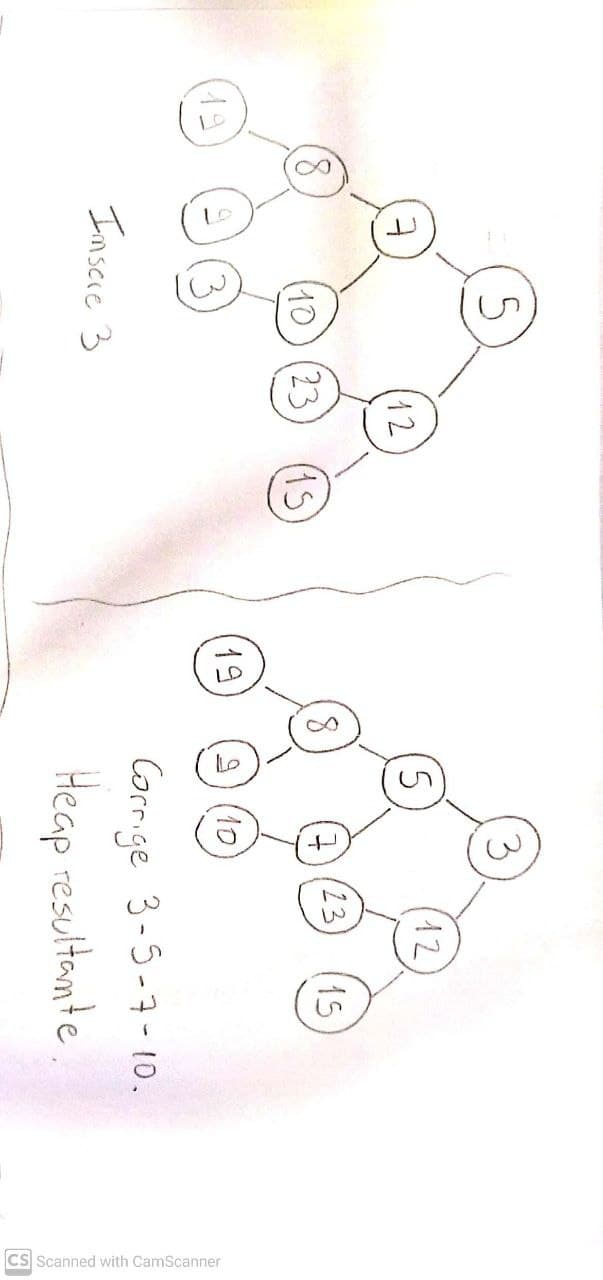 5
7 12
8 10 23 15
19 9 3
Insere 3
3
5 12
8 7 23 15
19 9 10
Corrige 3-5-7-10.
Heap resultante.
CS Scanned with CamScanner